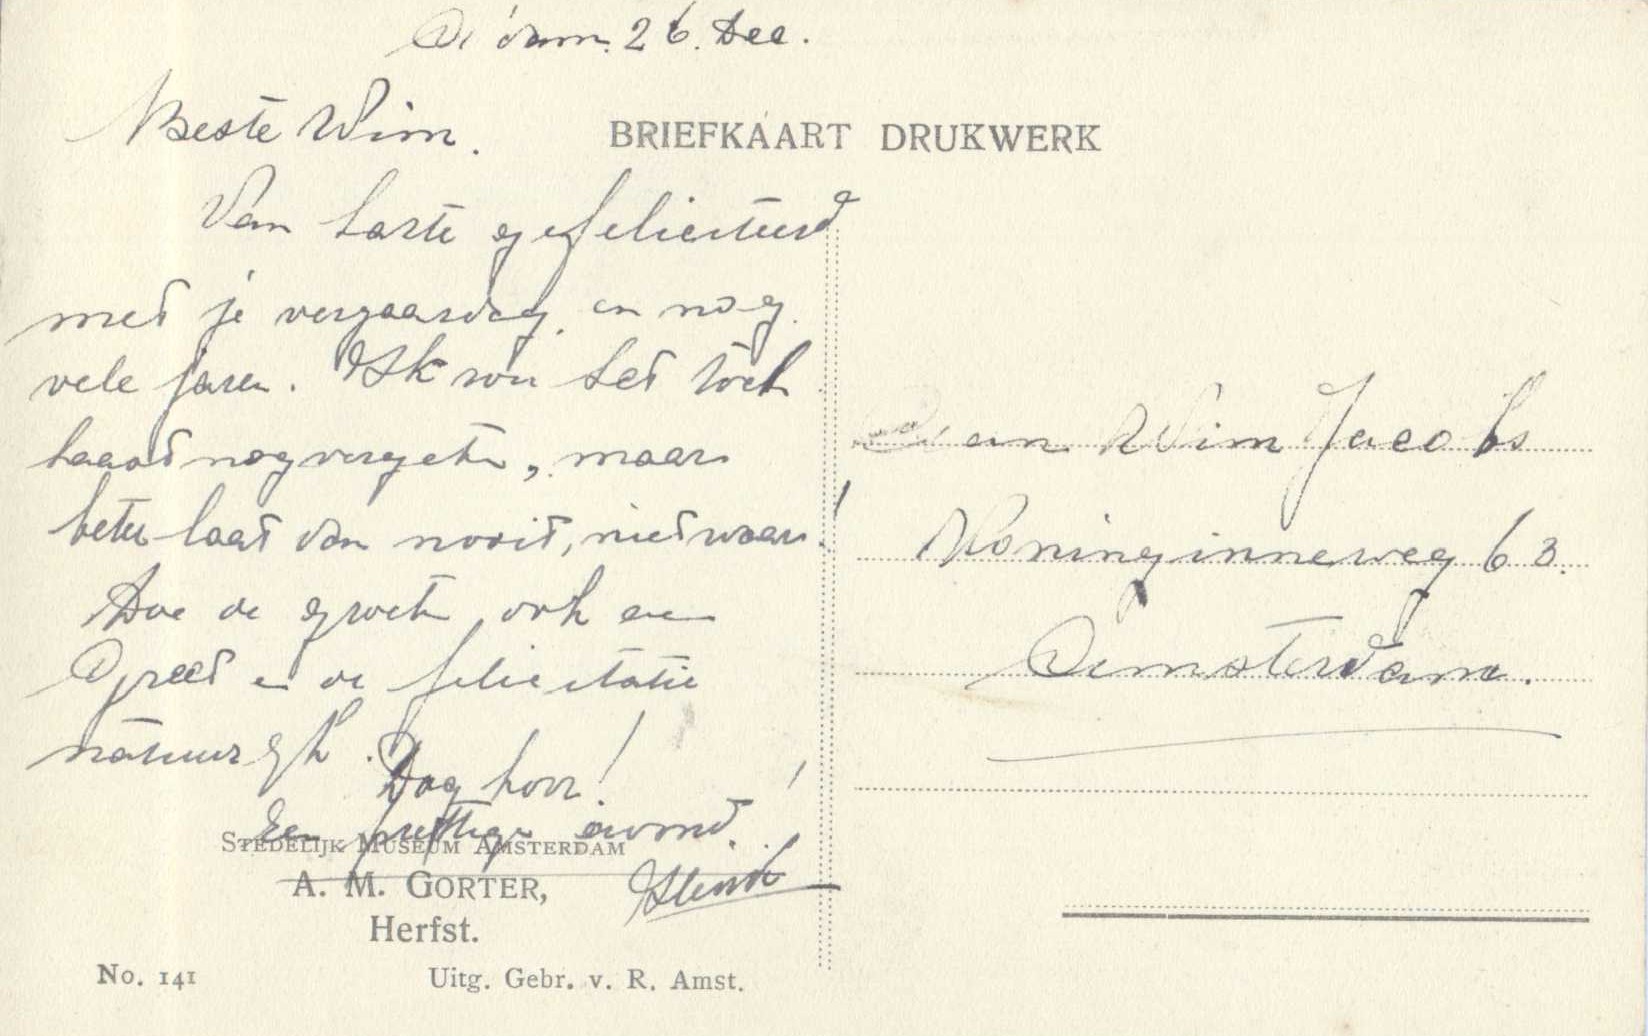 A'dam. 26. Dec.
Beste Wim.
BRIEFKAART DRUKWERK
Van harte gefeliciteerd
met je verjaardag en nog
vele jaren. Ik zou het toch
haast nog vergeten, maar
beter laat dan nooit, nietwaar!
Doe de groeten ook aan
Greet en de felicitatie
natuurlijk. Dag hoor!
Een prettige avond!
Henk
STEDELIJK MUSEUM AMSTERDAM
A. M. GORTER,
Herfst.
No. 141
Uitg. Gebr. v. R. Amst.
Aan Wim Jacobs
Koninginneweg 63.
Amsterdam.